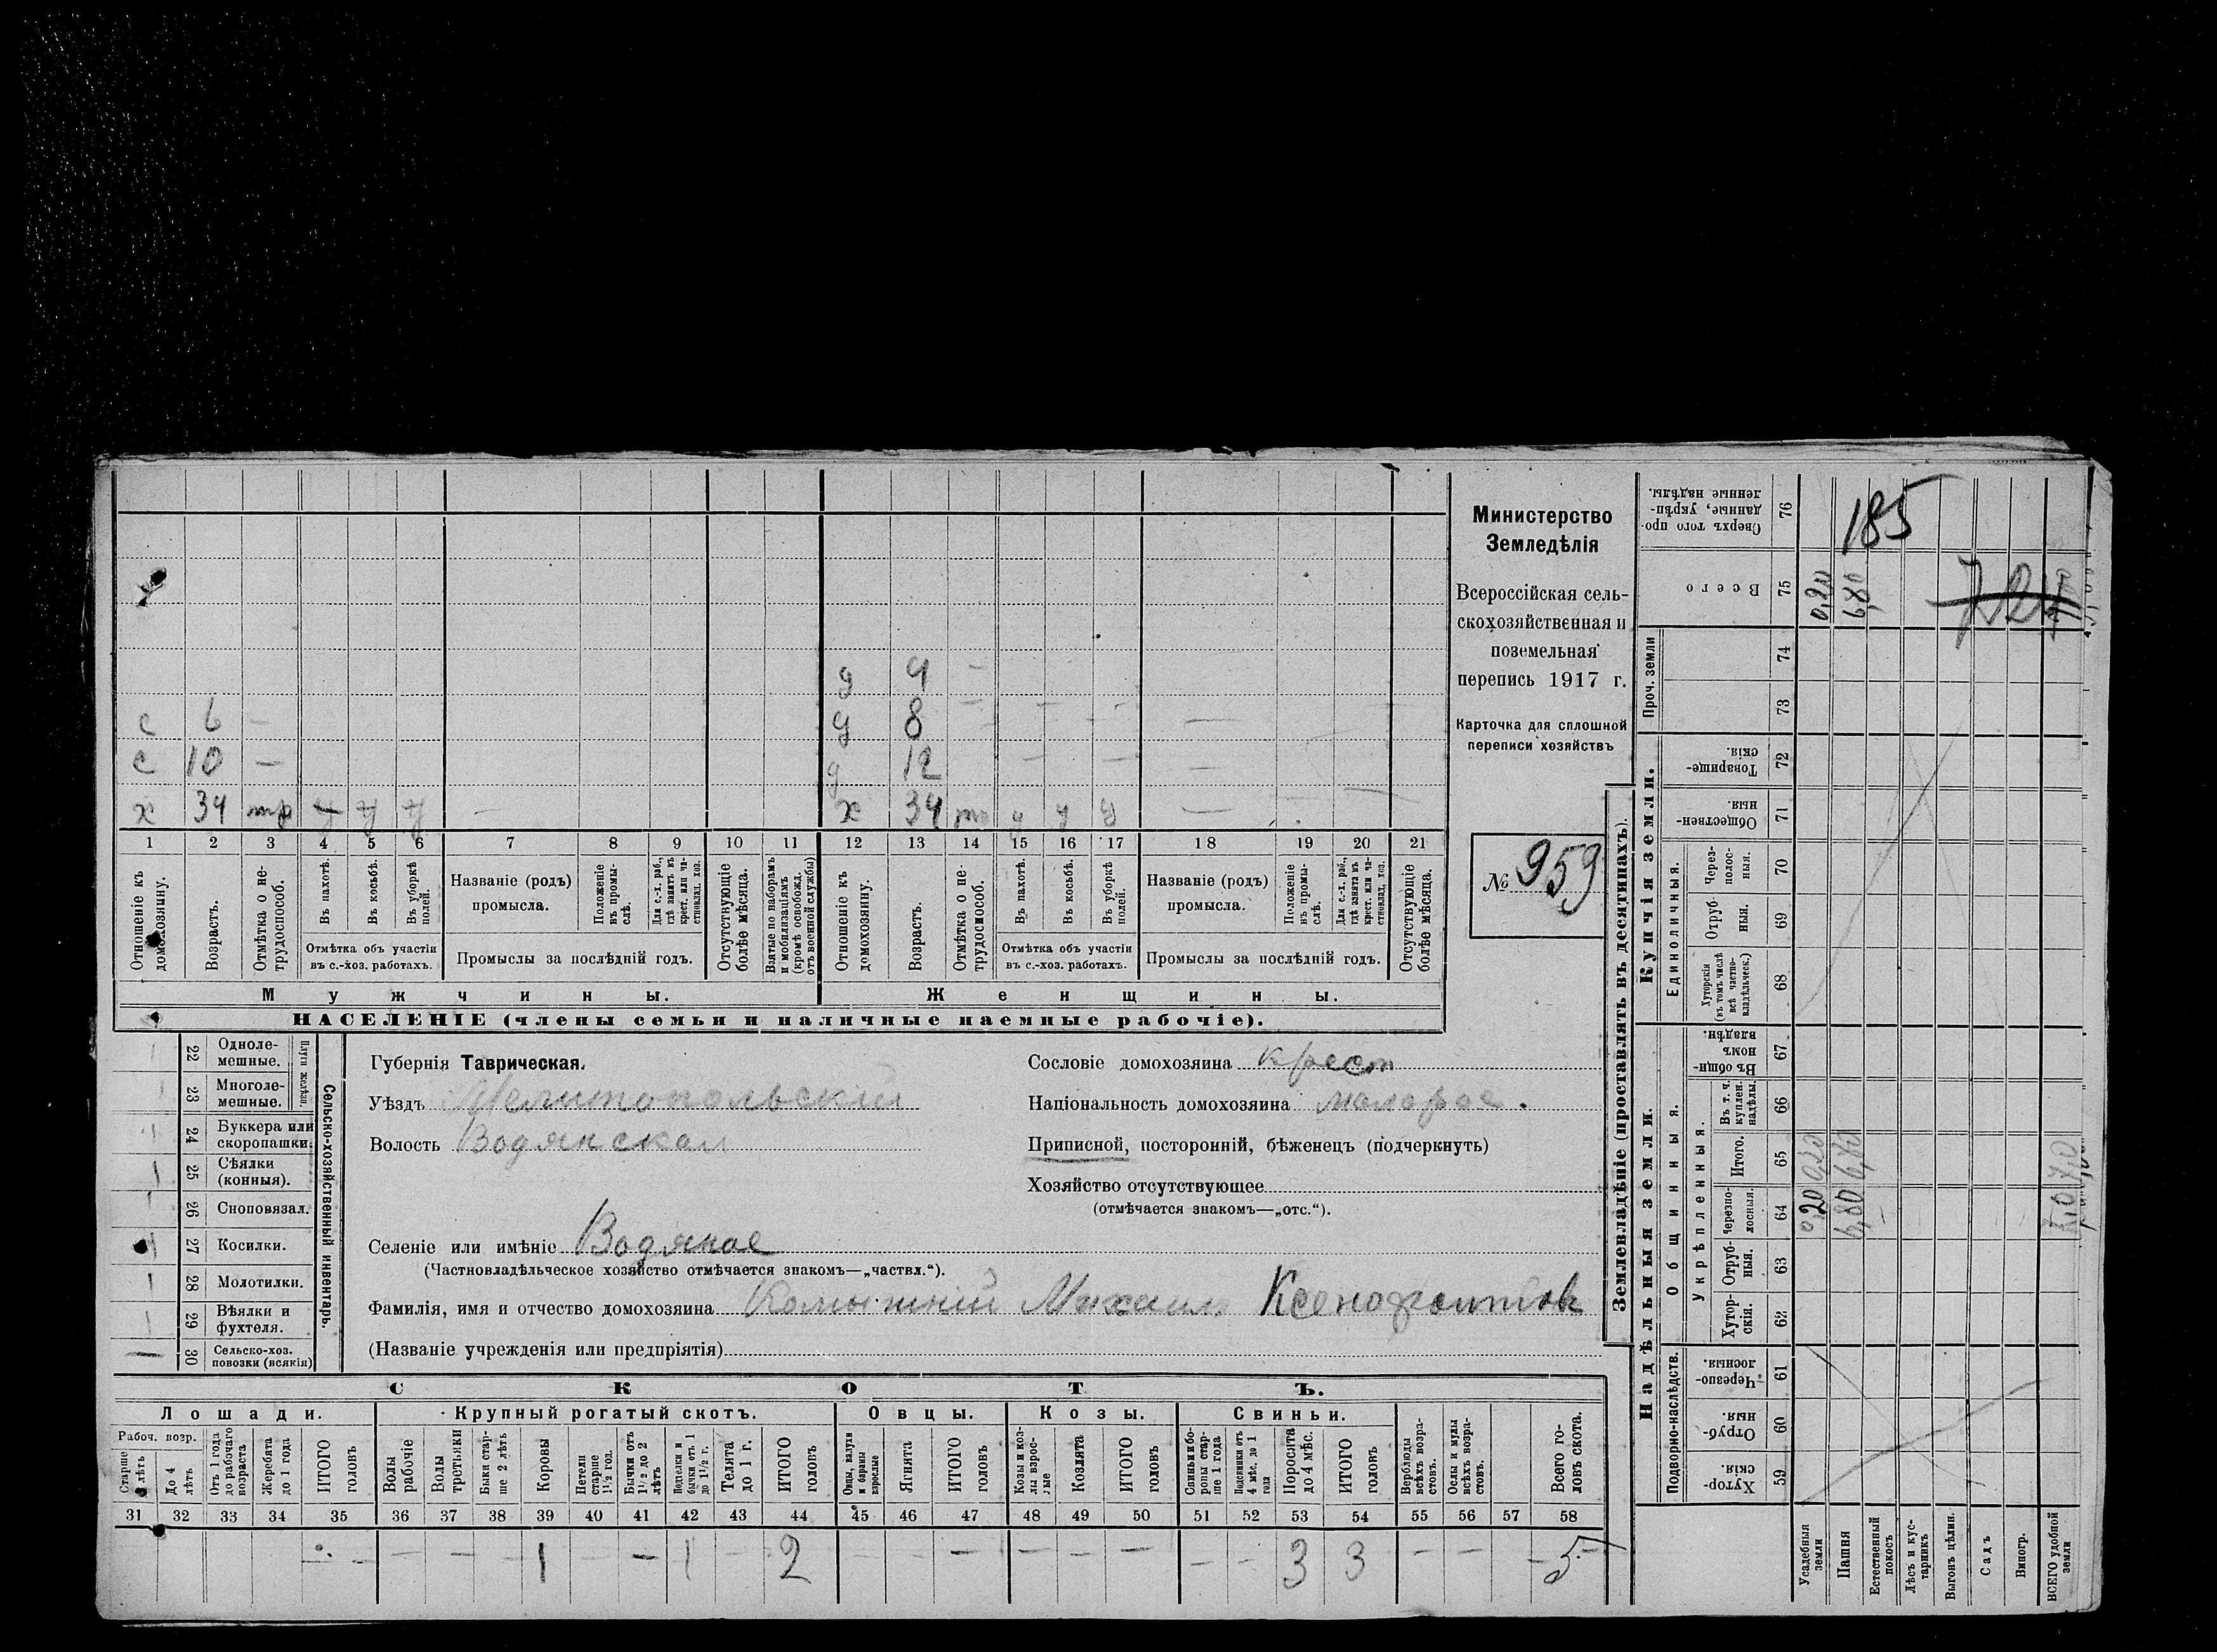 с 6 —
с 10 —
х 34 тр у у у —
д 4 —
д 8 — — — — —
д 12 — — — —
х 34 у у у —
1 2 3 4 5 6 7 8 9 10 11 12 13 14 15 16 17 18 19 20 21
Отношеніе къ домохозяину.
Возрастъ.
Отмѣтка о нетрудоспособ.
Въ пахотѣ.
Въ косьбѣ.
Въ уборкѣ полей.
Отмѣтка объ участіи въ с.-хоз. работахъ.
Названіе (родъ) промысла.
Положеніе въ промыслѣ.
Для с.-х. раб., гдѣ занятъ въ крест. или частновлад. хоз.
Промыслы за послѣдній годъ.
Отсутствующіе болѣе мѣсяца.
Взятые по наборамъ и мобилизаціямъ (кромѣ освобожд. отъ военной службы)
Отношеніе къ домохозяину.
Возрастъ.
Отмѣтка о нетрудоспособ.
Въ пахотѣ.
Въ косьбѣ.
Въ уборкѣ полей.
Отмѣтка объ участіи въ с.-хоз. работахъ.
Названіе (родъ) промысла.
Положеніе въ промыслѣ.
Для с.-х. раб., гдѣ занята въ крест. или частновлад. хоз.
Промыслы за послѣдній годъ.
Отсутствующіе болѣе мѣсяца.
Мужчины.
Женщины.
НАСЕЛЕНІЕ (члены семьи и наличные наемные рабочіе).
Министерство
Земледѣлія
Всероссійская сель-
скохозяйственная и
поземельная
перепись 1917 г.
Карточка для сплошной
переписи хозяйствъ
№ 959
Сельско-хозяйственный инвентарь.
Плуги желѣзн.
22 Одноле-
мешные.
23 Многоле-
мешные.
24 Буккера или
скоропашки.
25 Сѣялки
(конныя).
26 Сноповязал.
27 Косилки.
28 Молотилки.
29 Вѣялки и
фухтеля.
30 Сельско-хоз.
повозки (всякія)
Губернія Таврическая.
Уѣздъ Мелитопольскій
Волость Водянская
Сословіе домохозяина крест
Національность домохозяина малорос.
Приписной, посторонній, бѣженецъ (подчеркнуть)
Хозяйство отсутствующее
(отмѣчается знакомъ—„отс.“).
Селеніе или имѣніе Водяное
(Частновладѣльческое хозяйство отмѣчается знакомъ—„частвл.“).
Фамилія, имя и отчество домохозяина Михаилъ Ксенофонтовъ
(Названіе учрежденія или предпріятія)
СКОТЪ.
Лошади. Крупный рогатый скотъ. Овцы. Козы. Свиньи.
Рабоч. возр.
Старше 4 лѣтъ
До 4 лѣтъ
Отъ 1 года до рабочаго возраста
Жеребята до 1 года
ИТОГО головъ
Волы рабочіе
Волы третьяки
Быки старше 2 лѣтъ
Коровы
Нетели старше 1½ год.
Бычки отъ 1½ до 2 лѣтъ
Подтелки и бычки отъ 1 до 1½ г.
Телята до 1 г.
ИТОГО головъ
Овцы, валухи и бараны взрослые
Ягнята
ИТОГО головъ
Козы и козлы взрослые
Козлята
ИТОГО головъ
Свиньи и боровы старше 1 года
Подсвинки отъ 4 мѣс. до 1 года
Поросята до 4 мѣс.
ИТОГО головъ
Верблюды всѣхъ возрастовъ.
Ослы и мулы всѣхъ возрастовъ.
Всего головъ скота.
31 32 33 34 35 36 37 38 39 40 41 42 43 44 45 46 47 48 49 50 51 52 53 54 55 56 57 58
— — — — 1 — — 1 — 2 — — — — — — — — 3 3 — — 5
Землевладѣніе (проставлять въ десятинахъ).
Купчія земли.
Надѣльныя земли.
Проч. земли
Единоличныя.
Общинныя.
Укрѣпленныя.
Подворно-наслѣдств.
Сверхъ того проданные, укрѣпленные надѣлы. 76 185
Всего 75 0,20 6,80
74
73
Товарищескія. 72
Общественныя. 71
Черезполосныя. 70
Отрубныя. 69
Хуторскія (въ томъ числѣ всѣ частновладѣльческ.) 68
Въ общинномъ владѣн. 67
Въ т. ч. куплен. надѣлы. 66
Итого. 65 0,20 6,80
Черезполосныя. 64 0,20 6,80 —
Отрубныя. 63
Хуторскія. 62
Черезполосныя. 61
Отрубныя. 60
Хуторскія. 59
Усадебныя земли
Пашня
Естественный покосъ
Лѣсъ и кустарникъ
Выгонъ цѣлин.
Садъ
Виногр.
ВСЕГО удобной земли